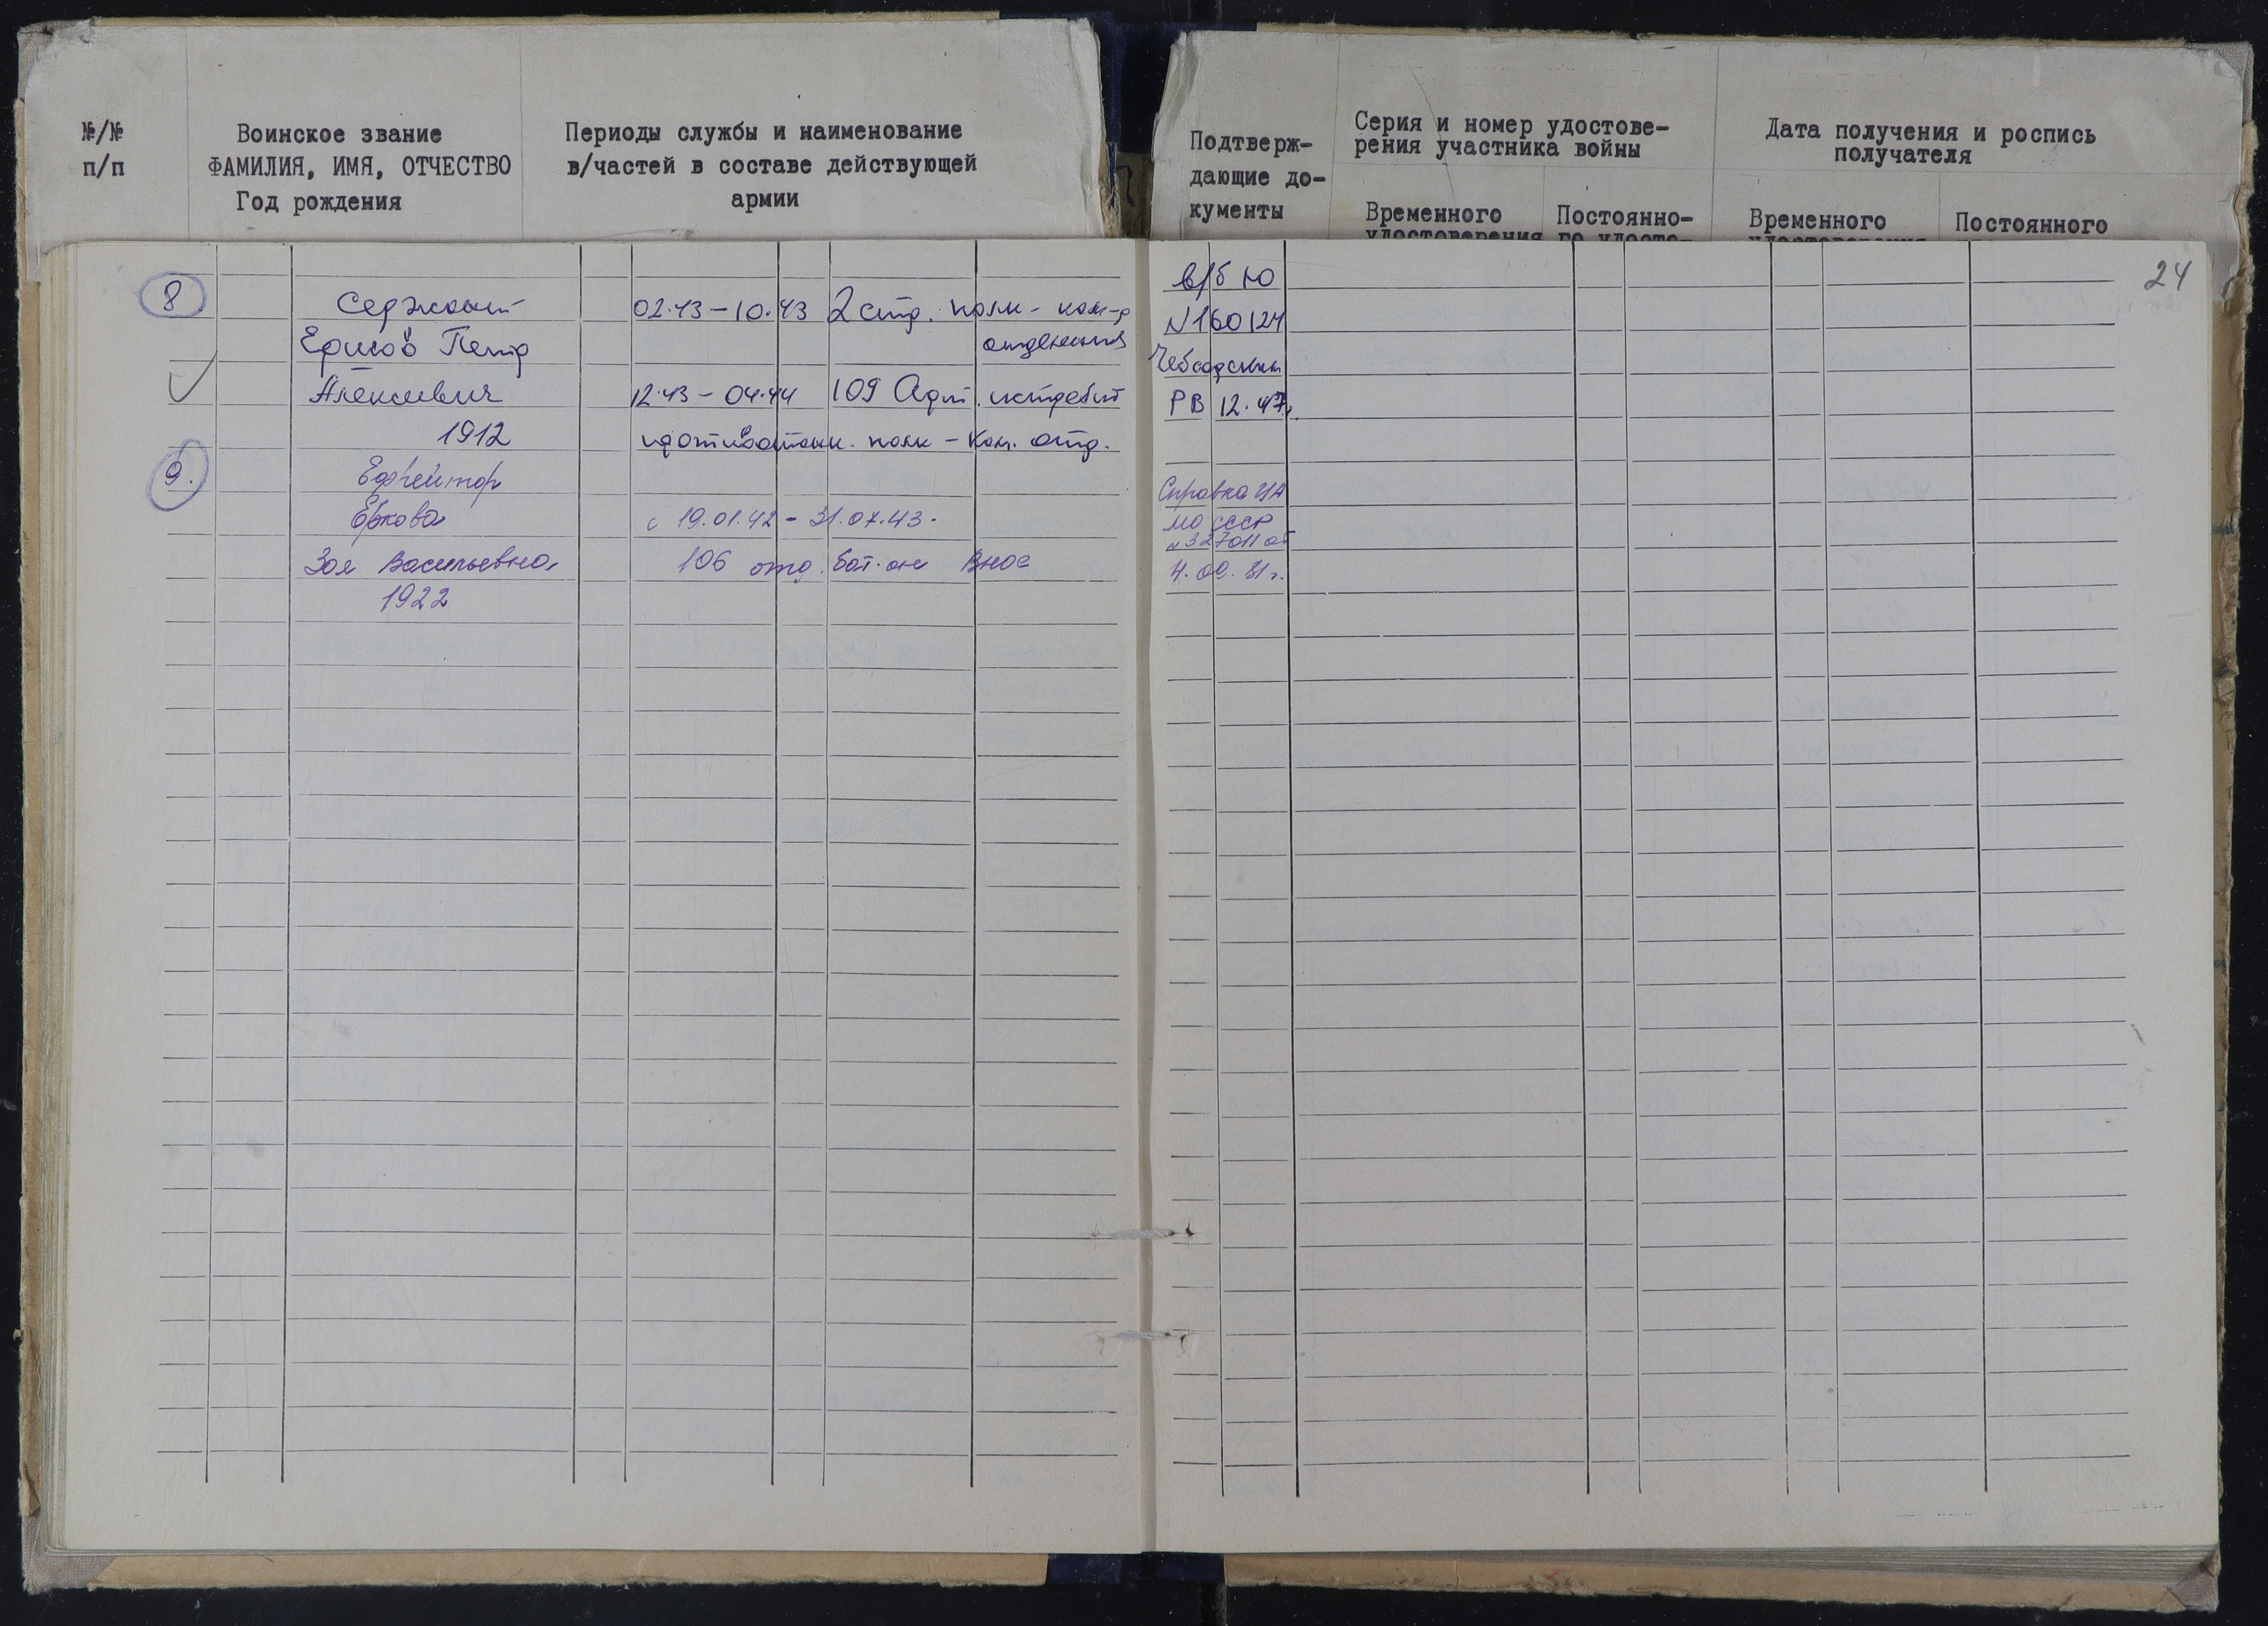 №/№ п/п
Воинское звание
ФАМИЛИЯ, ИМЯ, ОТЧЕСТВО
Год рождения
Периоды службы и наименование
в/частей в составе действующей
армии
Подтверж-
дающие до-
кументы
Серия и номер удостове-
рения участника войны
Временного
удостоверения
Постоянно-
го удосто-
Дата получения и роспись
получателя
Временного
Постоянного
24
8 Сержант 02.43-10.43 2 стр. полк - ком-р
отделения
Ершов Петр
Алексеевич 12.43-04.44 109 Арт. истребит
1912 противотанк. полк - Ком. отд.
в/б Ю
N160124
РВ 12.47г.
9. Ефрейтор
Ершова с 19.01.42 - 31.07.43.
Зоя Васильевна, 106 отд. бат-он Внос
1922
Справка ЦА
МО СССР
N 327011 от
4.09.81г.